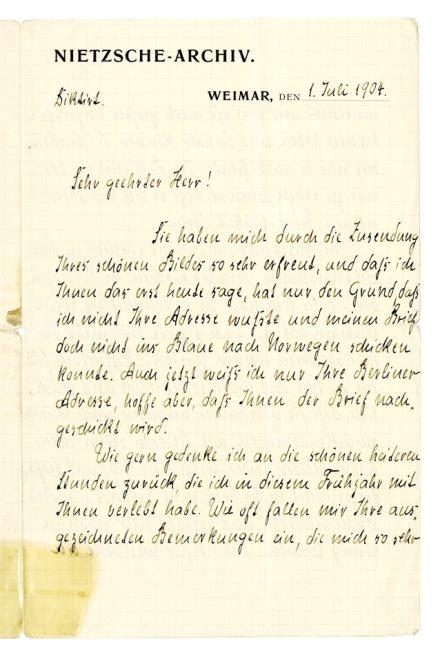 NIETZSCHE-ARCHIV.
Diktirt.
WEIMAR, DEN 1. Juli 1904.
Sehr geehrter Herr!
Sie haben mich durch die Zusendung
Ihres schönen Bildes so sehr erfreut, und daß ich
Ihnen das erst heute sage, hat nur den Grund, daß
ich nicht Ihre Adresse wußte und meinen Brief
doch nicht ins Blaue nach Norwegen schicken
konnte. Auch jetzt weiß ich nur Ihre Berliner
Adresse, hoffe aber, daß Ihnen der Brief nach-
geschickt wird.
Wie gern gedenke ich an die schönen heiteren
Stunden zurück, die ich in diesem Frühjahr mit
Ihnen verlebt habe. Wie oft fallen mir Ihre aus-
gezeichneten Bemerkungen ein, die mich so sehr